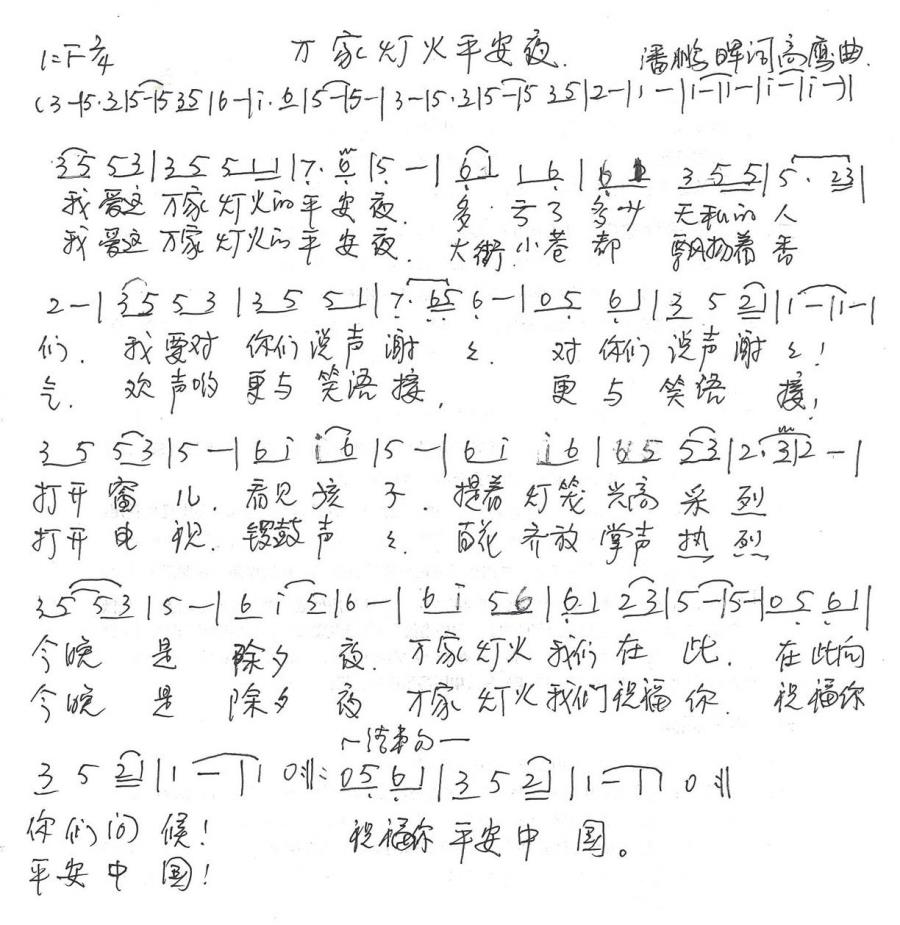 1=F 2/4 万家灯火平安夜. 潘鹏晖词高鹰曲.
(3-|5·3|5-|5 35|6-|i·6|5-|5-|3-|5·3|5-|5 35|2-|1-|1-|1-|i-|i-)|
35 53|35 511|7·6|5-|61 16|61 355|5·23|
我爱这万家灯火的平安夜. 多亏了多少无私的人
我爱这万家灯火的平安夜. 大街小巷都飘扬着香
2-|35 53|35 51|7·65 6-|05 61|3 5 21|1-|1-|
们. 我要对你们说声谢々. 对你们说声谢々!
气. 欢声哟更与笑语接, 更与笑语接,
35 53|5-|6i i6|5-|6i i6|65 53|2·3|2-|
打开窗儿. 看见孩子. 提着灯笼兴高采列
打开电视. 锣鼓声々. 百花齐放掌声热烈
35 53|5-|6 i 5|6-|6i 56|6·1 23|5-|5-|05 61|
今晚是除夕夜. 万家灯火我们在此. 在此向
今晚是除夕夜 万家灯火我们祝福你. 祝福你
结束句
3 5 21|1-|1 0:‖ 05 61|3 5 21|1-|1 0‖
你们问候! 祝福你平安中国。
平安中国!